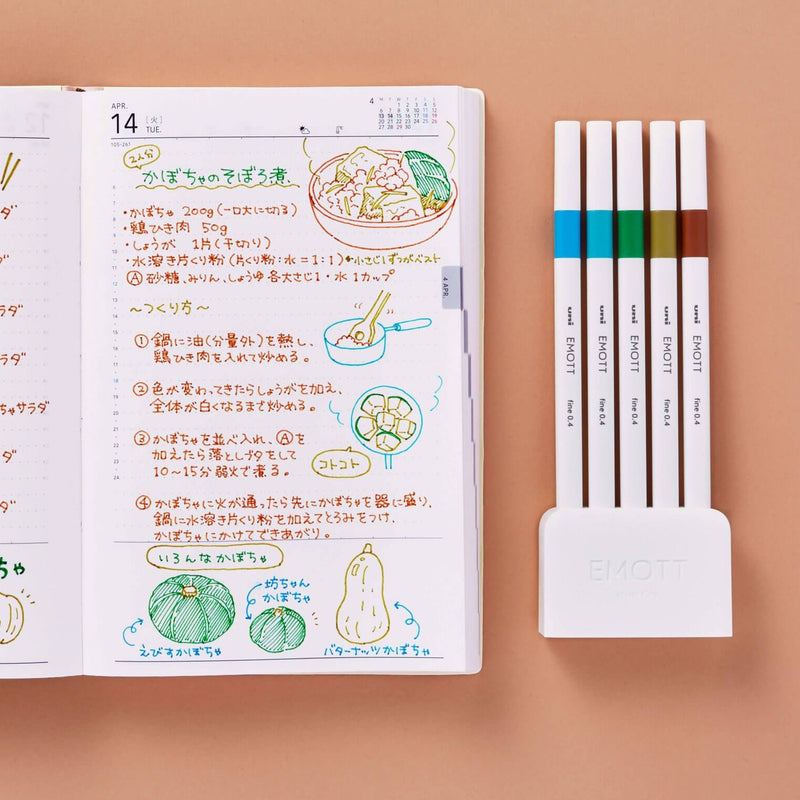 APR.
14 [火]
TUE.
105-261
4 M T W T F S S
1 2 3 4 5
6 7 8 9 10 11 12
13 14 15 16 17 18 19
20 21 22 23 24 25 26
27 28 29 30
2人分
かぼちゃのそぼろ煮、
・かぼちゃ 200g(一口大に切る)
・鶏ひき肉 50g
・しょうが 1片(千切り)
・水溶き片くり粉(片くり粉:水=1:1)←小さじ1ずつがベスト
Ⓐ砂糖、みりん、しょうゆ 各大さじ1・水 1カップ
4 APR.
〜つくり方〜
①鍋に油(分量外)を熱し、
鶏ひき肉を入れて炒める。
②色が変わってきたらしょうがを加え、
全体が白くなるまで炒める。
③かぼちゃを並べ入れ、Ⓐを
加えたら落としブタをして
10〜15分弱火で煮る。
コトコト
④かぼちゃに火が通ったら先にかぼちゃを器に盛り、
鍋に水溶き片くり粉を加えてとろみをつけ、
かぼちゃにかけてできあがり。
いろんなかぼちゃ
坊ちゃん
かぼちゃ
えびすかぼちゃ
バターナッツかぼちゃ
ラダ
サラダ
ちゃサラダ
ちゃ
uni EMOTT fine 0.4
uni EMOTT fine 0.4
uni EMOTT fine 0.4
uni EMOTT fine 0.4
uni EMOTT fine 0.4
EMOTT